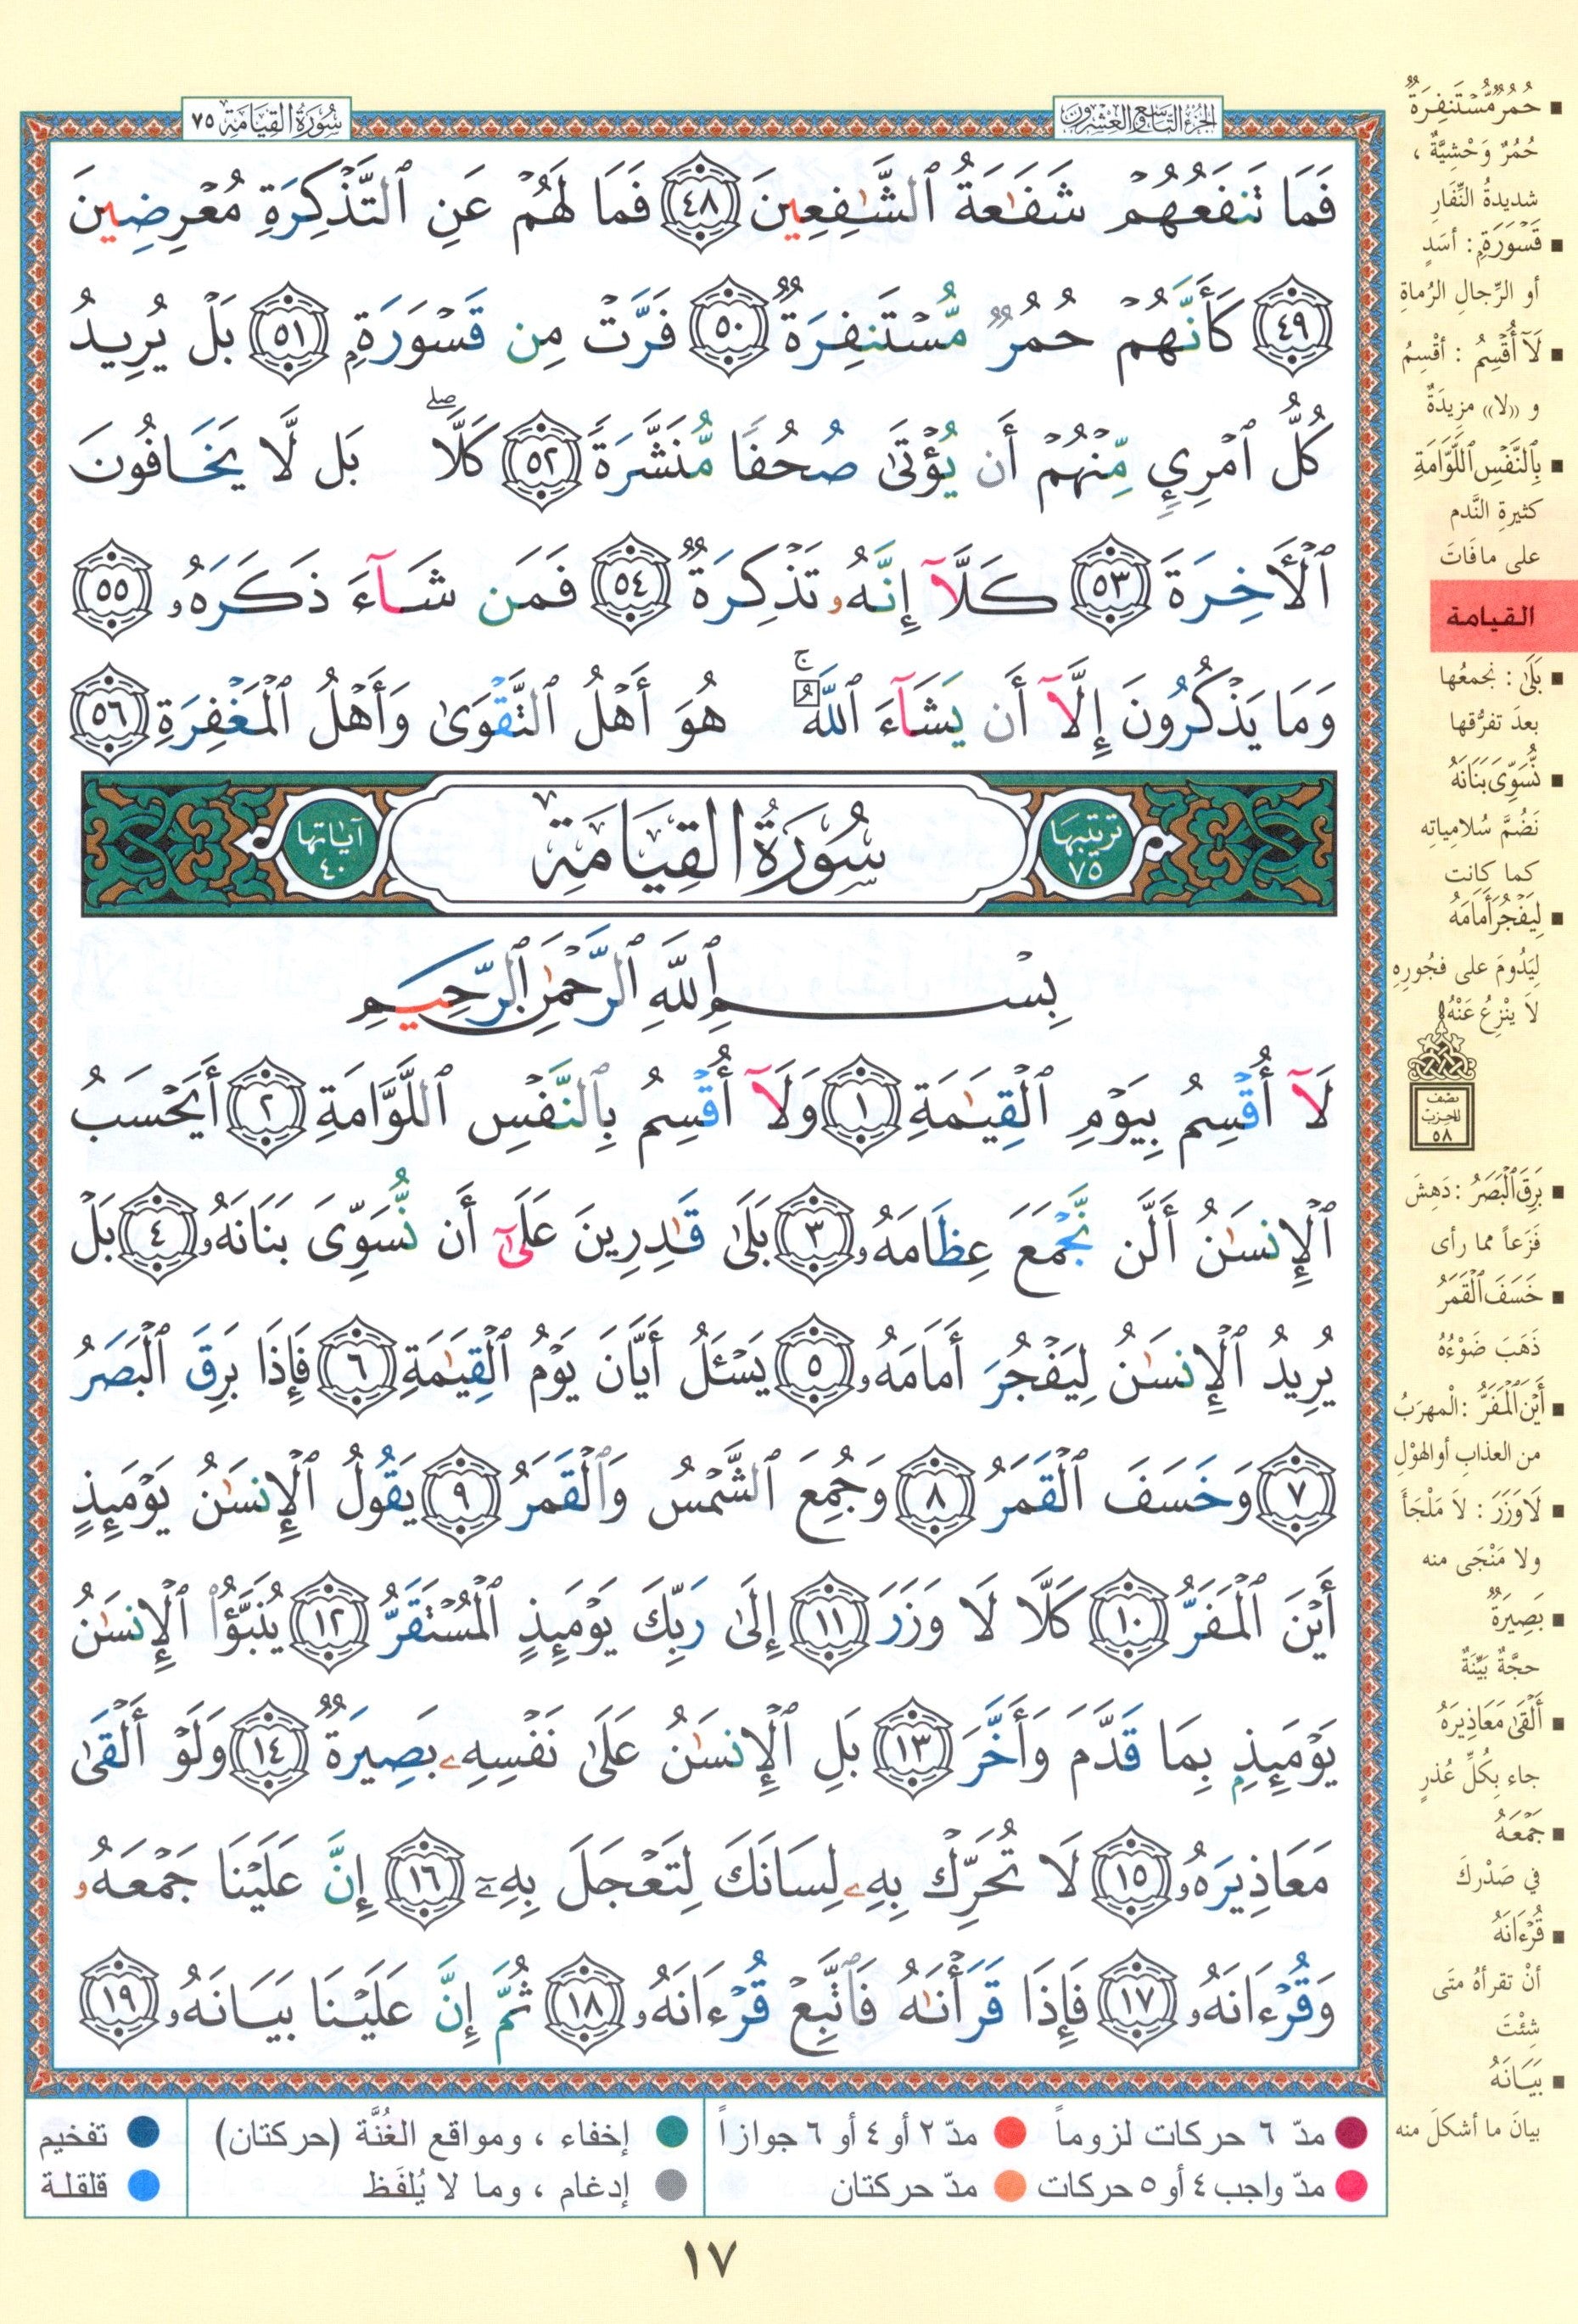 الجزء التاسع والعشرون
سورة القيامة ٧٥
فَمَا تَنفَعُهُمْ شَفَـٰعَةُ ٱلشَّـٰفِعِينَ ٤٨ فَمَا لَهُمْ عَنِ ٱلتَّذْكِرَةِ مُعْرِضِينَ
٤٩ كَأَنَّهُمْ حُمُرٌ مُّسْتَنفِرَةٌ ٥٠ فَرَّتْ مِن قَسْوَرَةٍۭ ٥١ بَلْ يُرِيدُ
كُلُّ ٱمْرِئٍ مِّنْهُمْ أَن يُؤْتَىٰ صُحُفًا مُّنَشَّرَةً ٥٢ كَلَّا ۖ بَل لَّا يَخَافُونَ
ٱلْـَٔاخِرَةَ ٥٣ كَلَّآ إِنَّهُۥ تَذْكِرَةٌ ٥٤ فَمَن شَآءَ ذَكَرَهُۥ ٥٥
وَمَا يَذْكُرُونَ إِلَّآ أَن يَشَآءَ ٱللَّهُ ۚ هُوَ أَهْلُ ٱلتَّقْوَىٰ وَأَهْلُ ٱلْمَغْفِرَةِ ٥٦
ترتيبها ٧٥
سُورَةُ القِيَامَةِ
آياتها ٤٠
بِسْمِ ٱللَّهِ ٱلرَّحْمَـٰنِ ٱلرَّحِيمِ
لَآ أُقْسِمُ بِيَوْمِ ٱلْقِيَـٰمَةِ ١ وَلَآ أُقْسِمُ بِٱلنَّفْسِ ٱللَّوَّامَةِ ٢ أَيَحْسَبُ
ٱلْإِنسَـٰنُ أَلَّن نَّجْمَعَ عِظَامَهُۥ ٣ بَلَىٰ قَـٰدِرِينَ عَلَىٰٓ أَن نُّسَوِّىَ بَنَانَهُۥ ٤ بَلْ
يُرِيدُ ٱلْإِنسَـٰنُ لِيَفْجُرَ أَمَامَهُۥ ٥ يَسْـَٔلُ أَيَّانَ يَوْمُ ٱلْقِيَـٰمَةِ ٦ فَإِذَا بَرِقَ ٱلْبَصَرُ
٧ وَخَسَفَ ٱلْقَمَرُ ٨ وَجُمِعَ ٱلشَّمْسُ وَٱلْقَمَرُ ٩ يَقُولُ ٱلْإِنسَـٰنُ يَوْمَئِذٍ
أَيْنَ ٱلْمَفَرُّ ١٠ كَلَّا لَا وَزَرَ ١١ إِلَىٰ رَبِّكَ يَوْمَئِذٍ ٱلْمُسْتَقَرُّ ١٢ يُنَبَّؤُا۟ ٱلْإِنسَـٰنُ
يَوْمَئِذٍۭ بِمَا قَدَّمَ وَأَخَّرَ ١٣ بَلِ ٱلْإِنسَـٰنُ عَلَىٰ نَفْسِهِۦ بَصِيرَةٌ ١٤ وَلَوْ أَلْقَىٰ
مَعَاذِيرَهُۥ ١٥ لَا تُحَرِّكْ بِهِۦ لِسَانَكَ لِتَعْجَلَ بِهِۦٓ ١٦ إِنَّ عَلَيْنَا جَمْعَهُۥ
وَقُرْءَانَهُۥ ١٧ فَإِذَا قَرَأْنَـٰهُ فَٱتَّبِعْ قُرْءَانَهُۥ ١٨ ثُمَّ إِنَّ عَلَيْنَا بَيَانَهُۥ ١٩
حُمُرٌ مُّسْتَنفِرَةٌ
حُمُرٌ وَحْشِيَّةٌ ،
شديدةُ النِّفَارِ
قَسْوَرَةٍ : أسَدٍ
أو الرِّجالِ الرُّماةِ
لَآ أُقْسِمُ : أقْسِمُ
و «لا» مزيدَةٌ
بِٱلنَّفْسِ ٱللَّوَّامَةِ
كثيرةِ النَّدم
على مافَاتَ
القيامة
بَلَىٰ : نجمعُها
بعدَ تفرُّقها
نُّسَوِّىَ بَنَانَهُ
نَضُمَّ سُلامياتِه
كما كانت
لِيَفْجُرَ أَمَامَهُ
لِيَدُومَ على فجُورِهِ
لاَ يَنْزِعُ عَنْهُ
نصف
الحزب
٥٨
بَرِقَ ٱلْبَصَرُ : دَهِشَ
فَزَعاً مما رأى
خَسَفَ ٱلْقَمَرُ
ذَهَبَ ضَوْءُهُ
أَيْنَ ٱلْمَفَرُّ : الْمهرَبُ
من العذابِ أو الهوْلِ
لَا وَزَرَ : لاَ مَلْجَأَ
ولا مَنْجَى منه
بَصِيرَةٌ
حجَّةٌ بَيِّنَةٌ
أَلْقَىٰ مَعَاذِيرَهُ
جاء بِكُلِّ عُذرٍ
جَمْعَهُ
في صَدْرِكَ
قُرْءَانَهُ
أنْ تقرأهُ متَى
شِئْتَ
بَيَانَهُ
بيانَ ما أشكلَ منه
مدّ ٦ حركات لزوماً مدّ ٢ أو ٤ أو ٦ جوازاً
مدّ واجب ٤ أو ٥ حركات مدّ حركتان
إخفاء ، ومواقع الغُنَّة (حركتان)
إدغام ، وما لا يُلفَظ
تفخيم
قلقلة
١٧